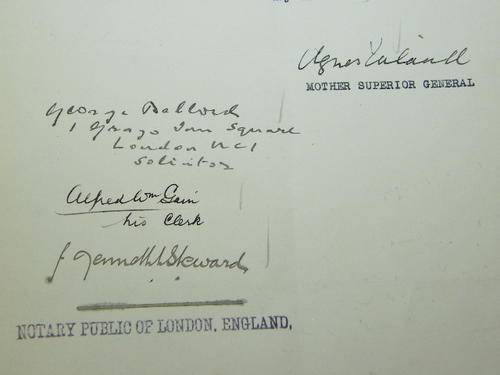 Agnes
MOTHER SUPERIOR GENERAL
George Ballard
1 Grays Inn Square
London WC1
Solicitor
Alfred Wm Gain
his Clerk
J Kenneth Steward
NOTARY PUBLIC OF LONDON, ENGLAND,